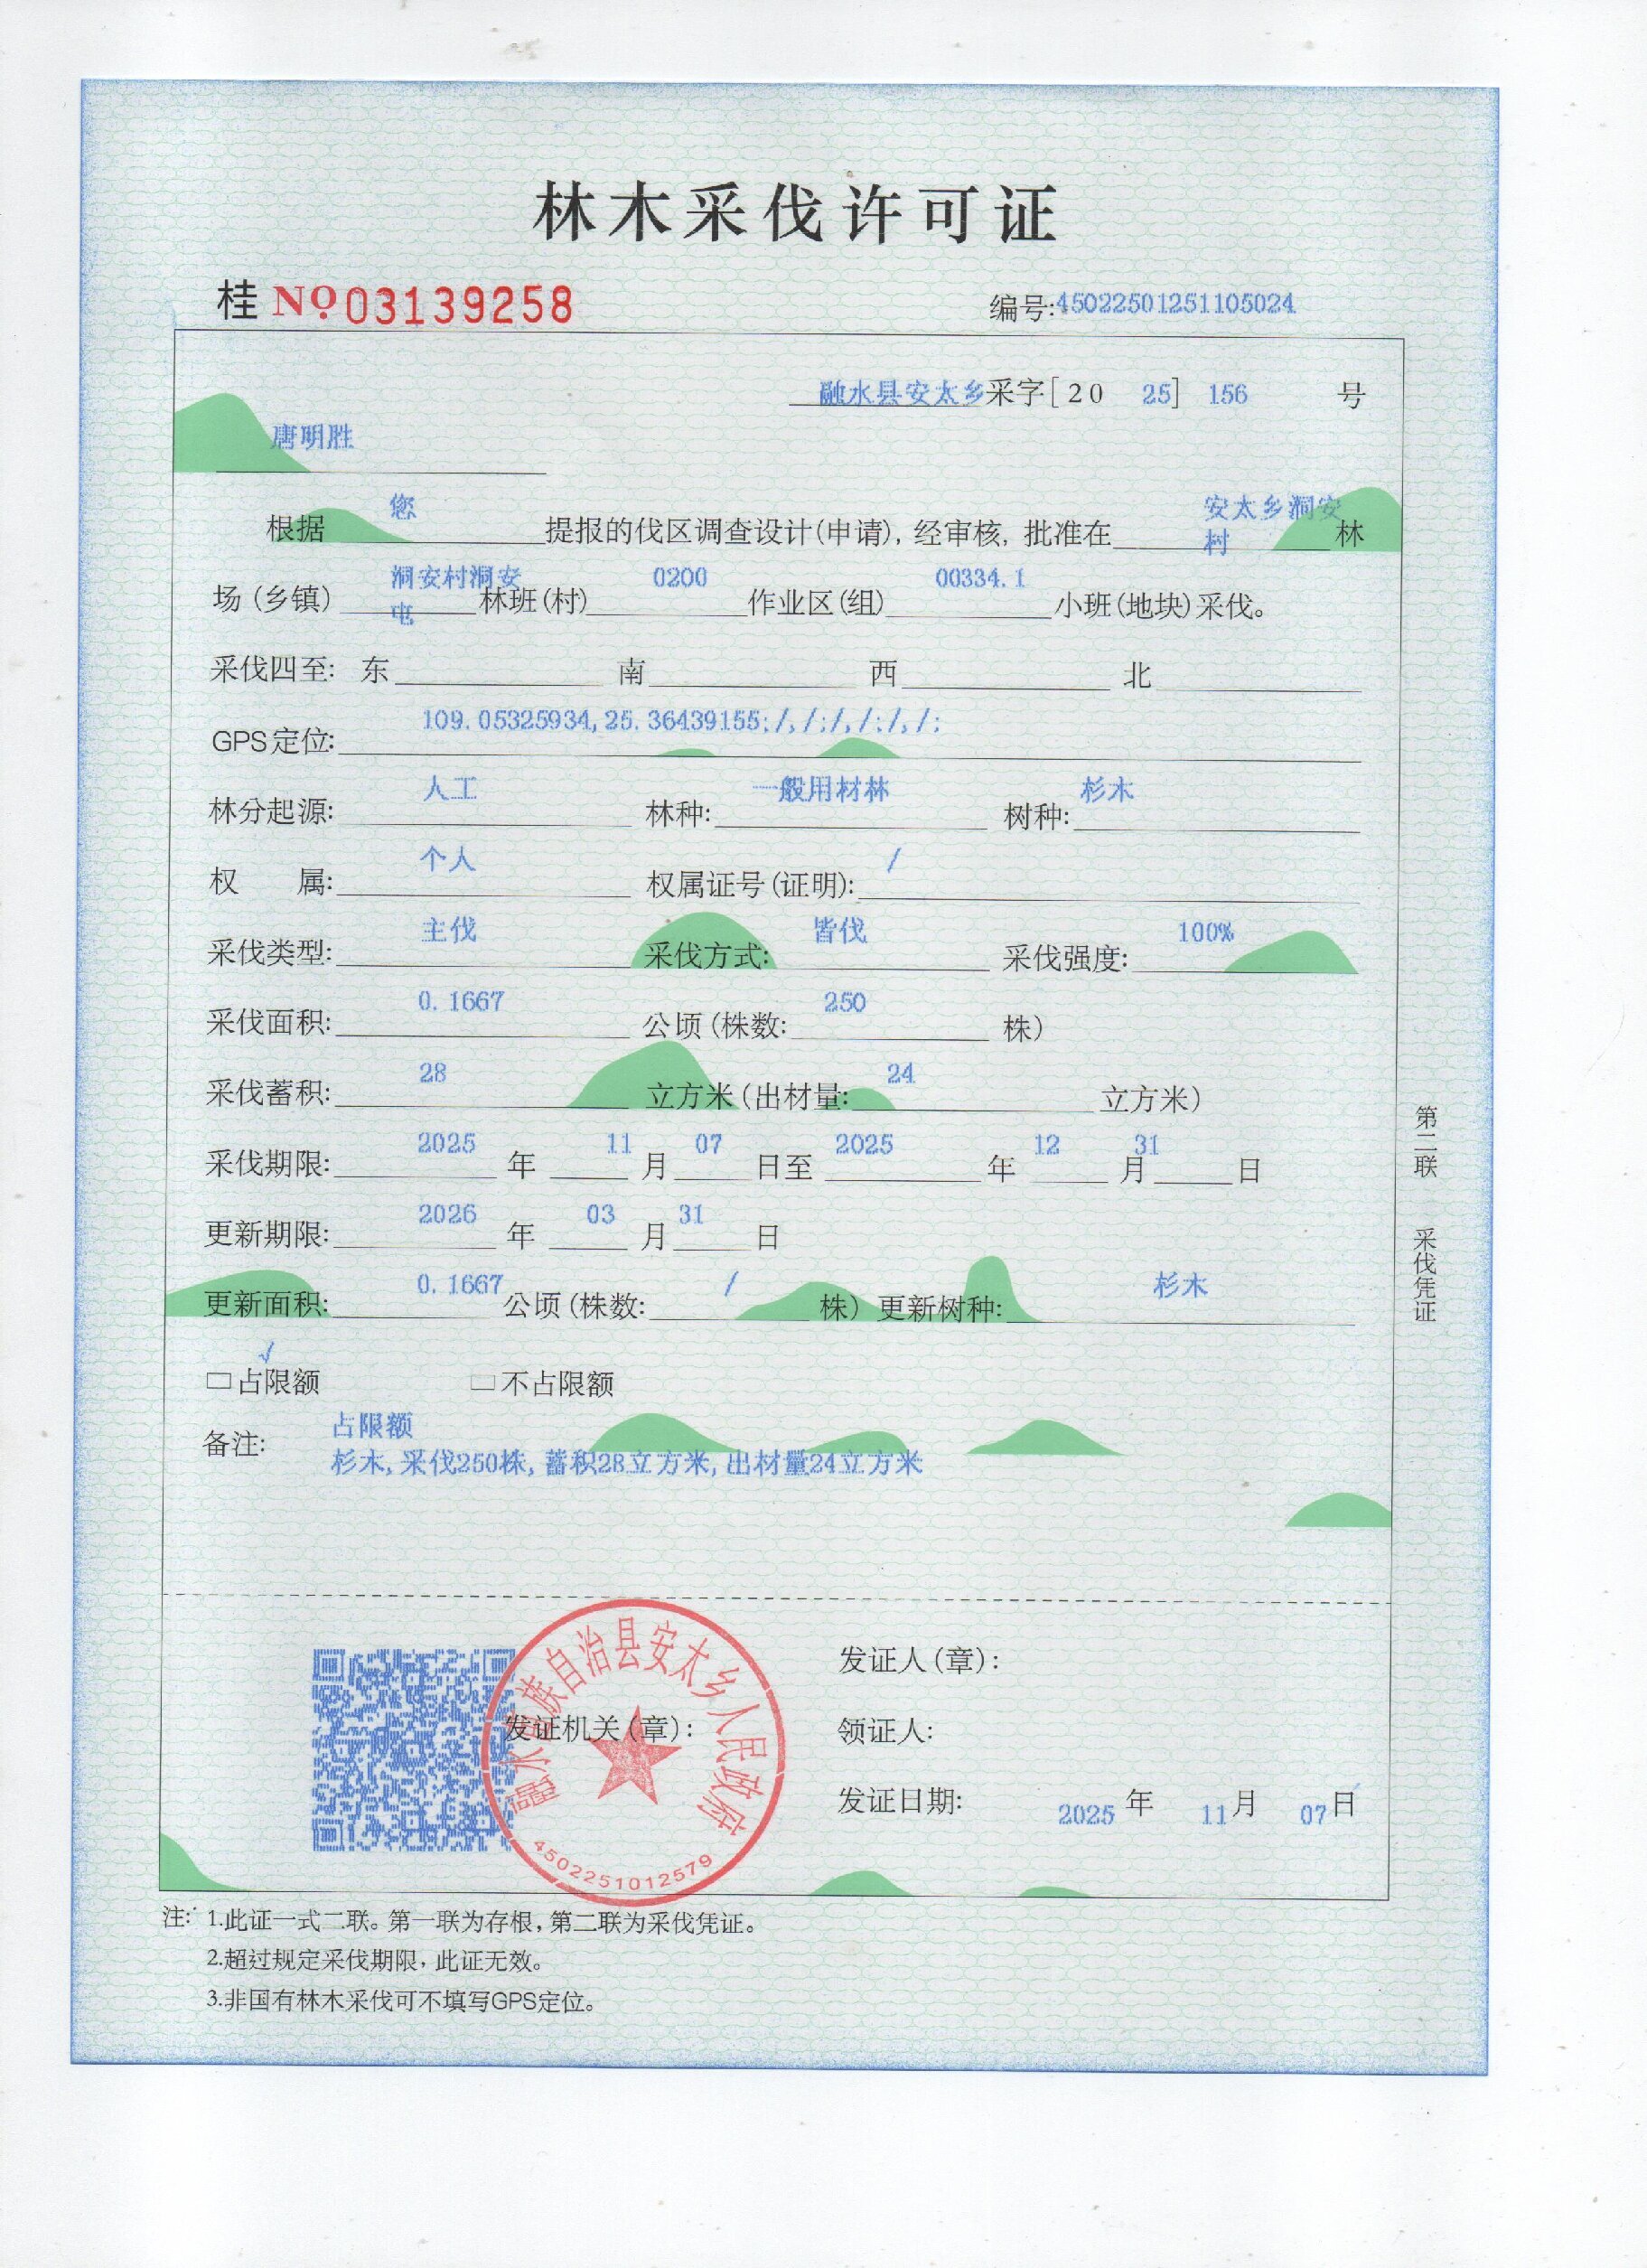 林木采伐许可证
桂 NO.03139258 编号:45022501251105024
融水县安太乡采字[2025] 156 号
唐明胜
根据 您 提报的伐区调查设计(申请),经审核,批准在 安太乡洞安村 林
场(乡镇) 洞安村洞安屯 林班(村) 0200 作业区(组) 00334.1 小班(地块)采伐。
采伐四至: 东 南 西 北
GPS定位: 109.05325934,25.36439155;/,/;/,/;/,/;
林分起源: 人工 林种: 一般用材林 树种: 杉木
权 属: 个人 权属证号(证明): /
采伐类型: 主伐 采伐方式: 皆伐 采伐强度: 100%
采伐面积: 0.1667 公顷(株数: 250 株)
采伐蓄积: 28 立方米(出材量: 24 立方米)
采伐期限: 2025 年 11 月 07 日至 2025 年 12 月 31 日
更新期限: 2026 年 03 月 31 日
更新面积: 0.1667 公顷(株数: / 株) 更新树种: 杉木
□√占限额 □不占限额
备注: 占限额
杉木,采伐250株,蓄积28立方米,出材量24立方米
第二联 采伐凭证
融水苗族自治县安太乡人民政府
4502251012579
发证机关(章):
发证人(章):
领证人:
发证日期: 2025 年 11 月 07 日
注: 1.此证一式二联。第一联为存根,第二联为采伐凭证。
2.超过规定采伐期限,此证无效。
3.非国有林木采伐可不填写GPS定位。